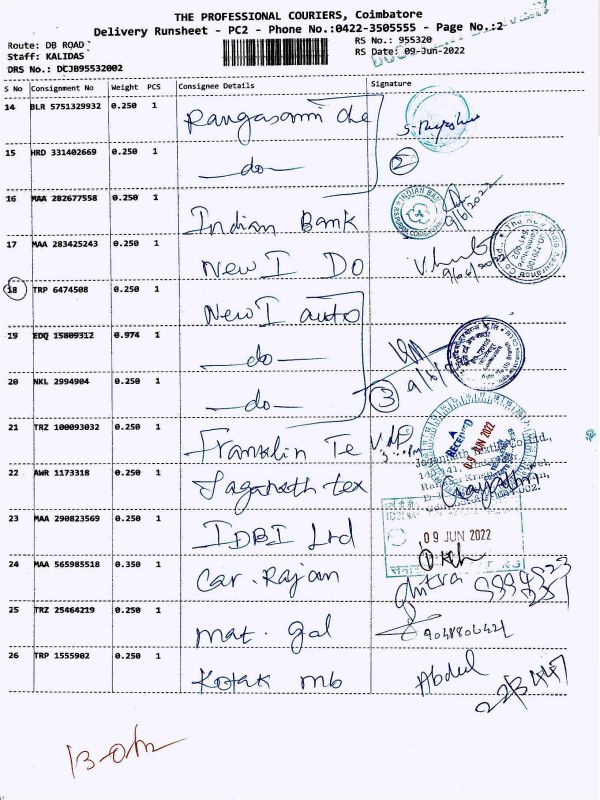 THE PROFESSIONAL COURIERS, Coimbatore
Delivery Runsheet - PC2 - Phone No.:0422-3505555 - Page No.:2
Route: DB ROAD
RS No.: 955320
Staff: KALIDAS
RS Date: 09-Jun-2022
DRS No.: DCJB95532002
S No Consignment No Weight PCS Consignee Details Signature
14 BLR 5751329932 0.250 1 Rangasami che
15 HRD 331402669 0.250 1 —do—
2
16 MAA 282677558 0.250 1 Indian Bank
9/6/2022
17 MAA 283425243 0.250 1 New I DO
18 TRP 6474508 0.250 1 New I auto
19 EDQ 15009312 0.974 1 —do—
20 NKL 2994904 0.250 1 —do—
3
21 TRZ 100093032 0.250 1 Franklin Te
RECEIVED
09 JUN 2022
22 AWR 1173318 0.250 1 Jaganath tex
23 MAA 290823569 0.250 1 IDBI Ltd
09 JUN 2022
24 MAA 565985518 0.350 1 Car. Rajam
25 TRZ 25464219 0.250 1 mat. gal
26 TRP 1555902 0.250 1 Kotak mb Abdul